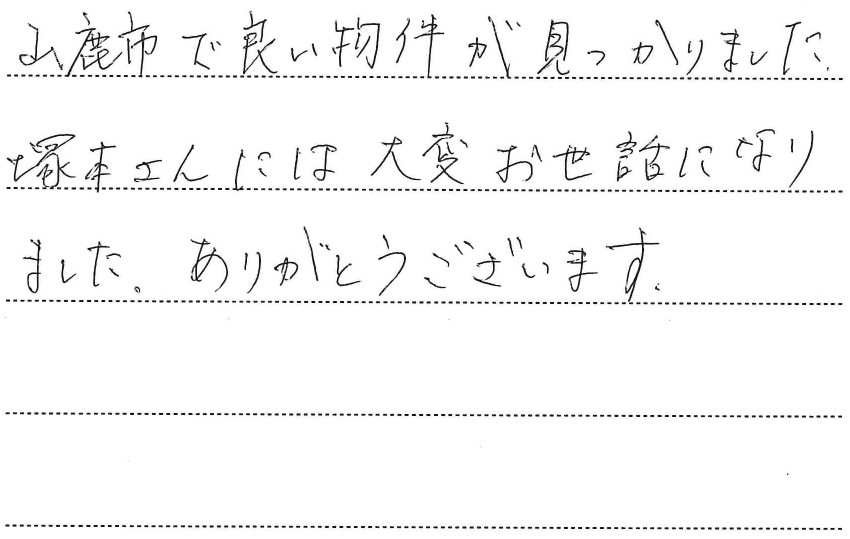 山鹿市で良い物件が見つかりました。
塚本さんには大変お世話になり
ました。ありがとうございます。